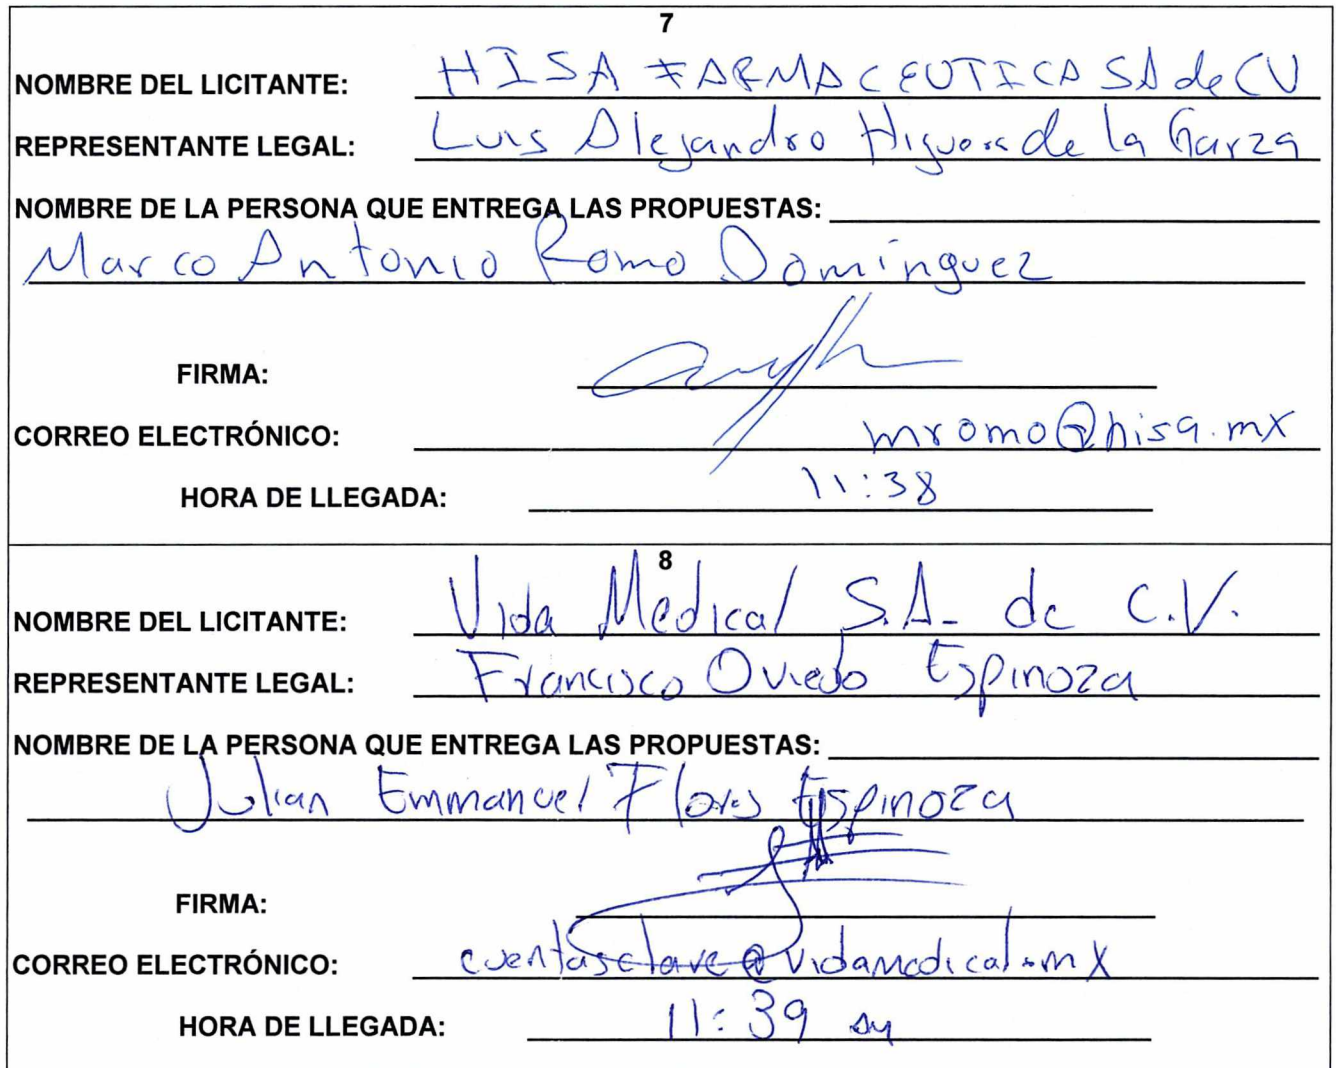 7
NOMBRE DEL LICITANTE: HISA FARMACEUTICA SA de CV
REPRESENTANTE LEGAL: Luis Alejandro Higuera de la Garza
NOMBRE DE LA PERSONA QUE ENTREGA LAS PROPUESTAS:
Marco Antonio Romo Domínguez
FIRMA:
CORREO ELECTRÓNICO: mromo@hisa.mx
HORA DE LLEGADA: 11:38
8
NOMBRE DEL LICITANTE: Vida Medical S.A. de C.V.
REPRESENTANTE LEGAL: Francisco Oviedo Espinoza
NOMBRE DE LA PERSONA QUE ENTREGA LAS PROPUESTAS:
Julian Emmanuel Flores Espinoza
FIRMA:
CORREO ELECTRÓNICO: cuentasclave@vidamedical.mx
HORA DE LLEGADA: 11:39